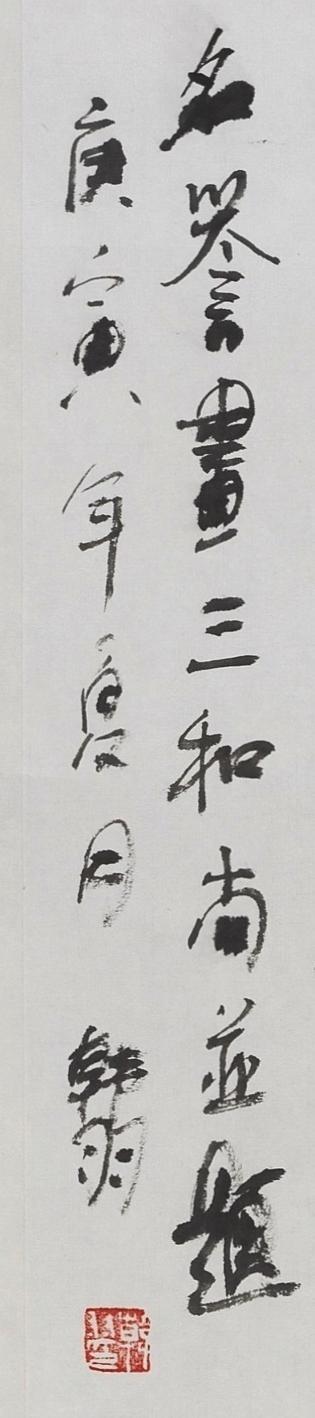 名譽畫三和尚並題
庚寅年夏月 韓羽